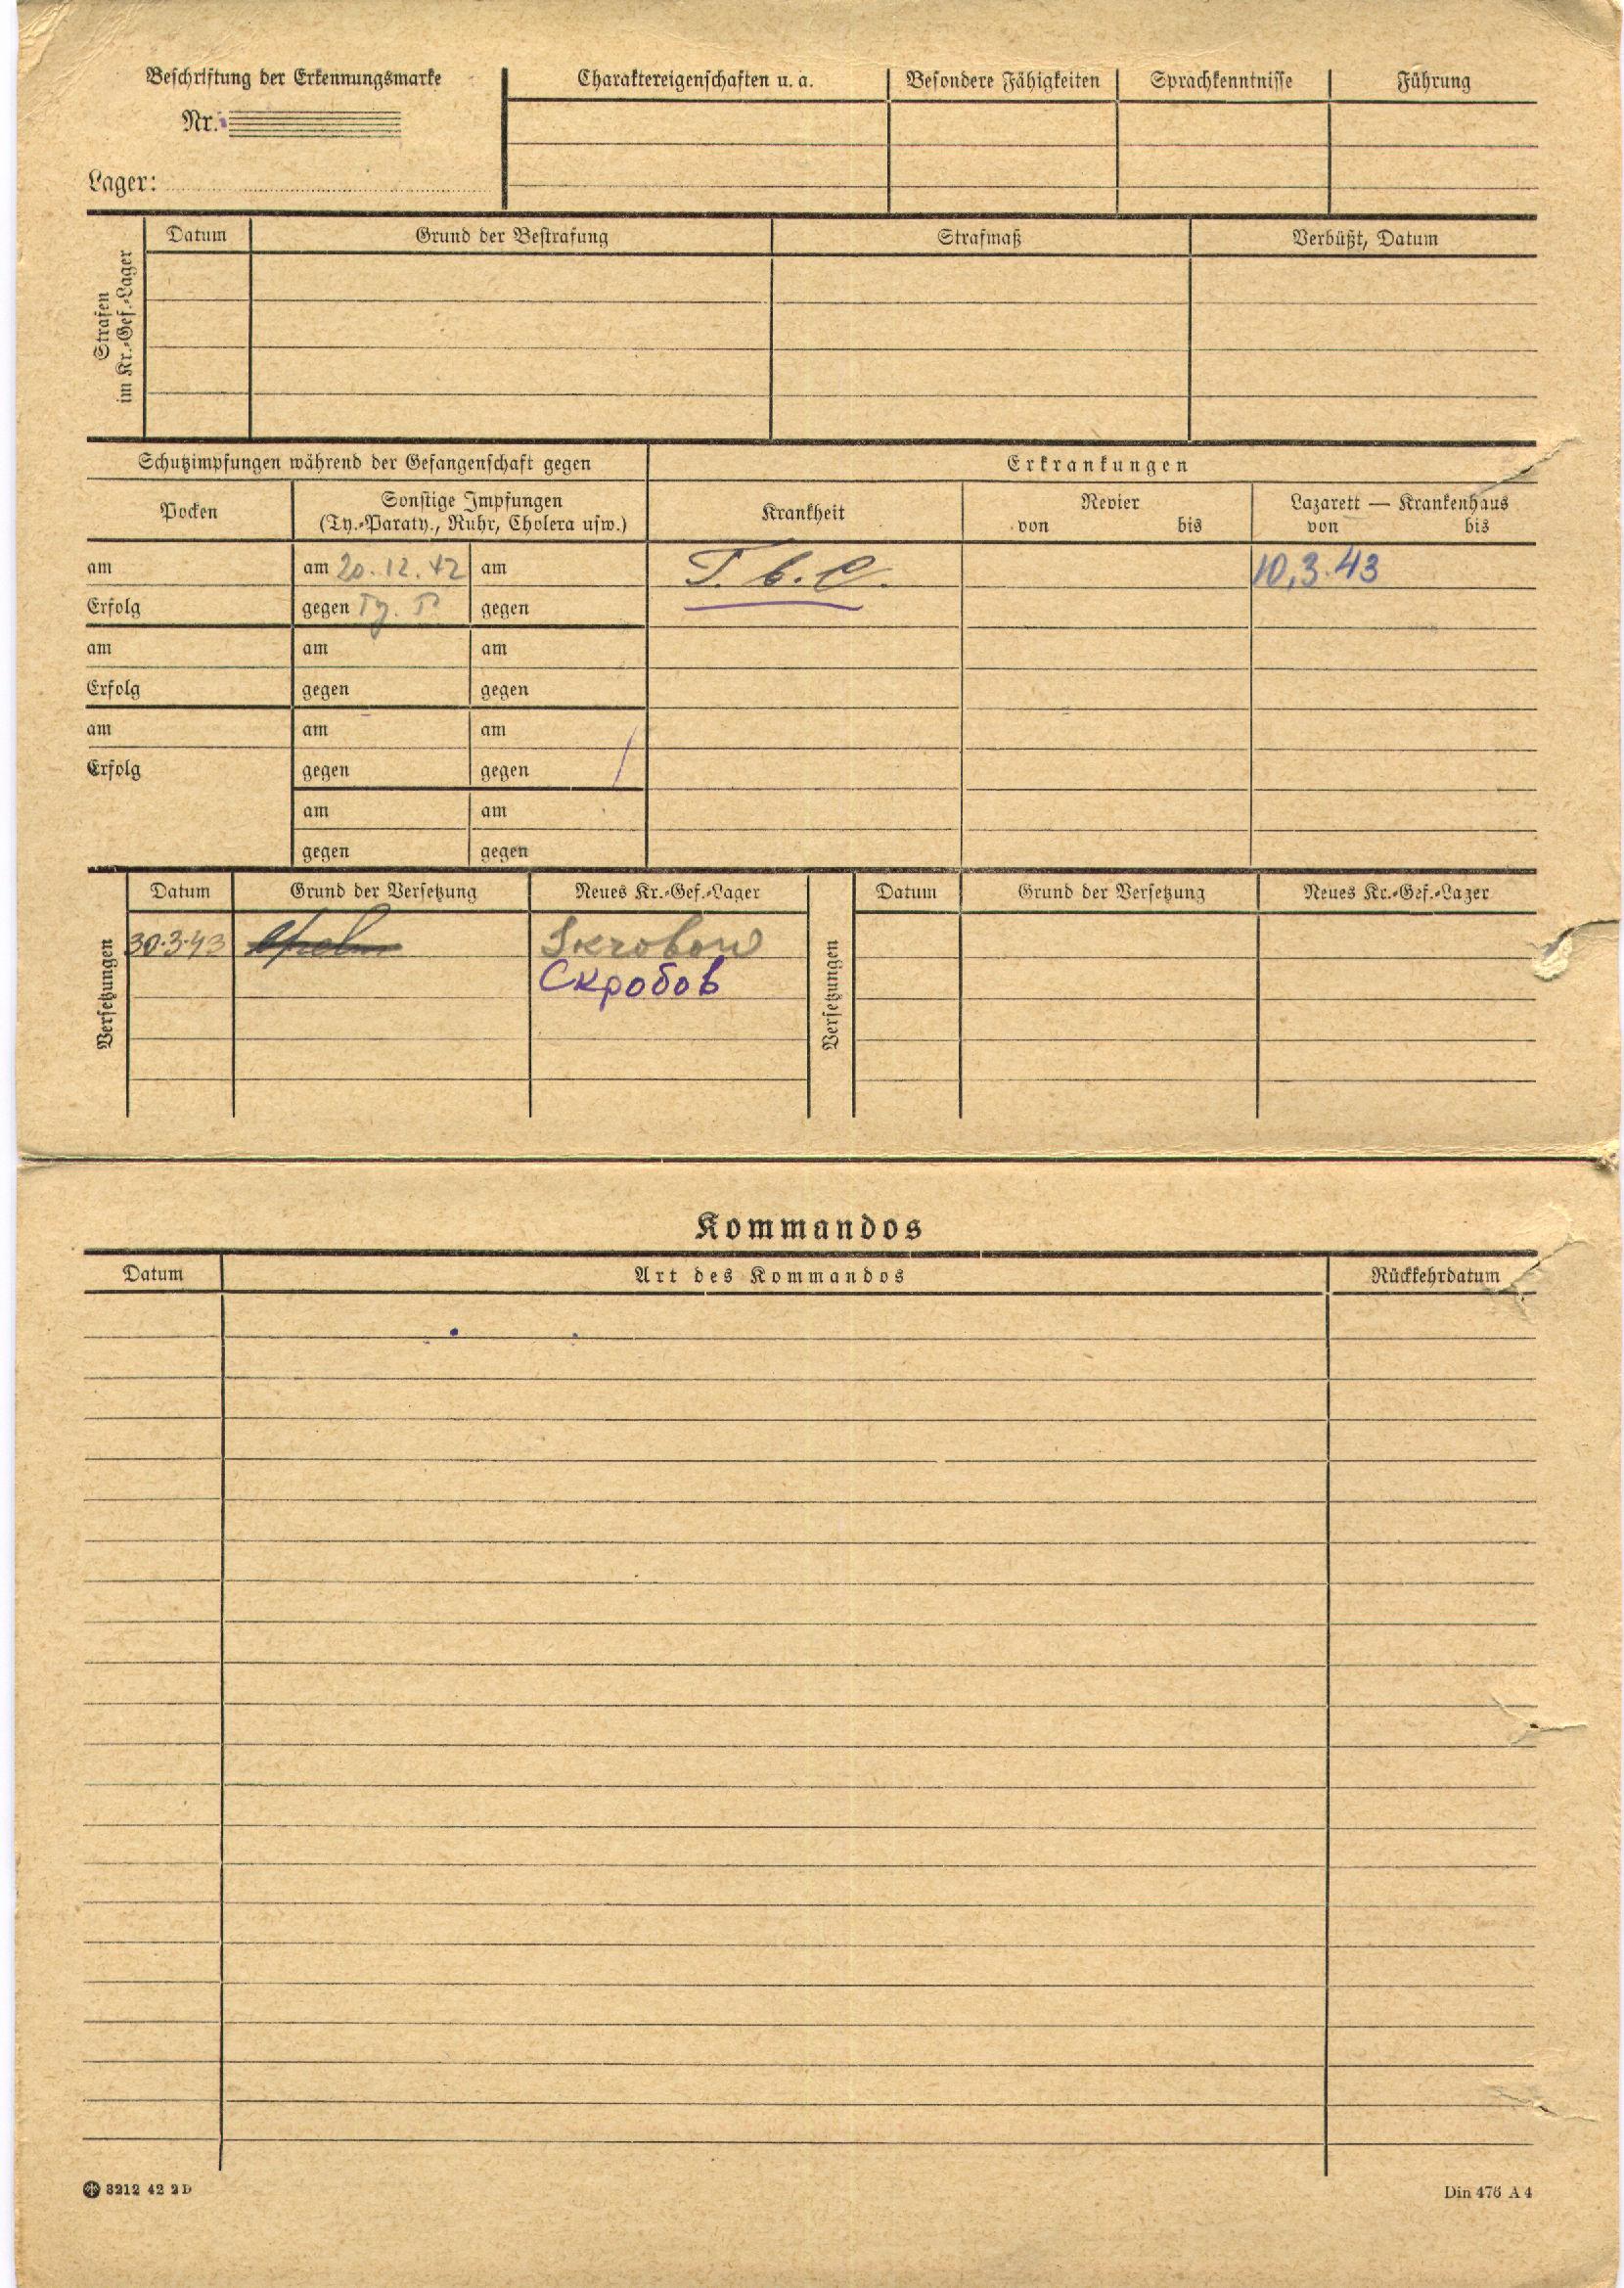 Beschriftung der Erkennungsmarke
Nr.
Lager:
Charaktereigenschaften u. a.
Besondere Fähigkeiten
Sprachkenntnisse
Führung
Strafen
im Kr.-Gef.-Lager
Datum
Grund der Bestrafung
Strafmaß
Verbüßt, Datum
Schutzimpfungen während der Gefangenschaft gegen
Erkrankungen
Pocken
Sonstige Impfungen
(Ty.-Paraty., Ruhr, Cholera usw.)
Krankheit
Revier
von bis
Lazarett — Krankenhaus
von bis
am
am 20.12.42
am
T.b.C.
10.3.43
Erfolg
gegen Ty. P.
gegen
am
am
am
Erfolg
gegen
gegen
am
am
am
Erfolg
gegen
gegen
am
am
gegen
gegen
Versetzungen
Datum
Grund der Versetzung
Neues Kr.-Gef.-Lager
Versetzungen
Datum
Grund der Versetzung
Neues Kr.-Gef.-Lager
30.3.43
Skrobow
Скробов
Kommandos
Datum
Art des Kommandos
Rückkehrdatum
3212 42 2 D
Din 476 A 4